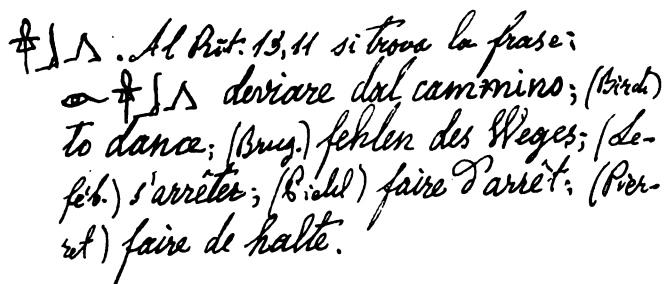 𓍋𓃀𓂻. Al Rit. 13,11 si trova la frase:
𓁹𓍋𓃀𓂻 deviare dal cammino; (Birch)
to dance; (Brug.) fehlen des Weges; (Le-
féb.) s'arrêter; (Piehl) faire d'arrêt; (Pier-
ret) faire de halte.